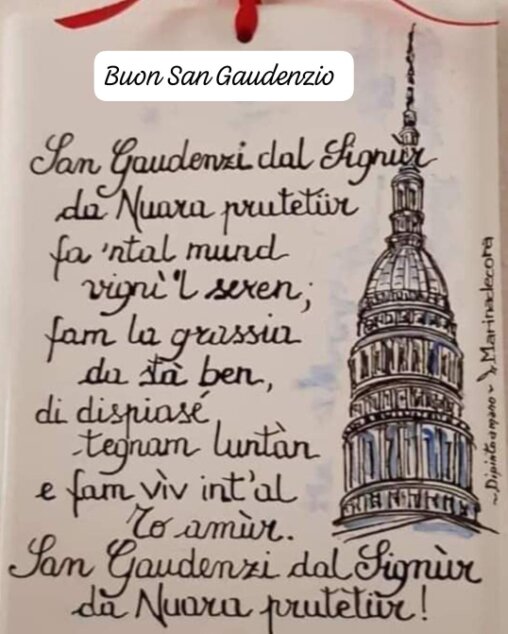 Buon San Gaudenzio
San Gaudenzi dal Signùr
da Nuara prutetùr
fa 'ntal mund
vignì 'l seren;
fam la grassia
da stà ben,
di dispiasé
tegnam luntàn
e fam vìv int'al
To amùr.
San Gaudenzi dal Signùr
da Nuara prutetùr!
~Dipinto a mano~ Marinadecora